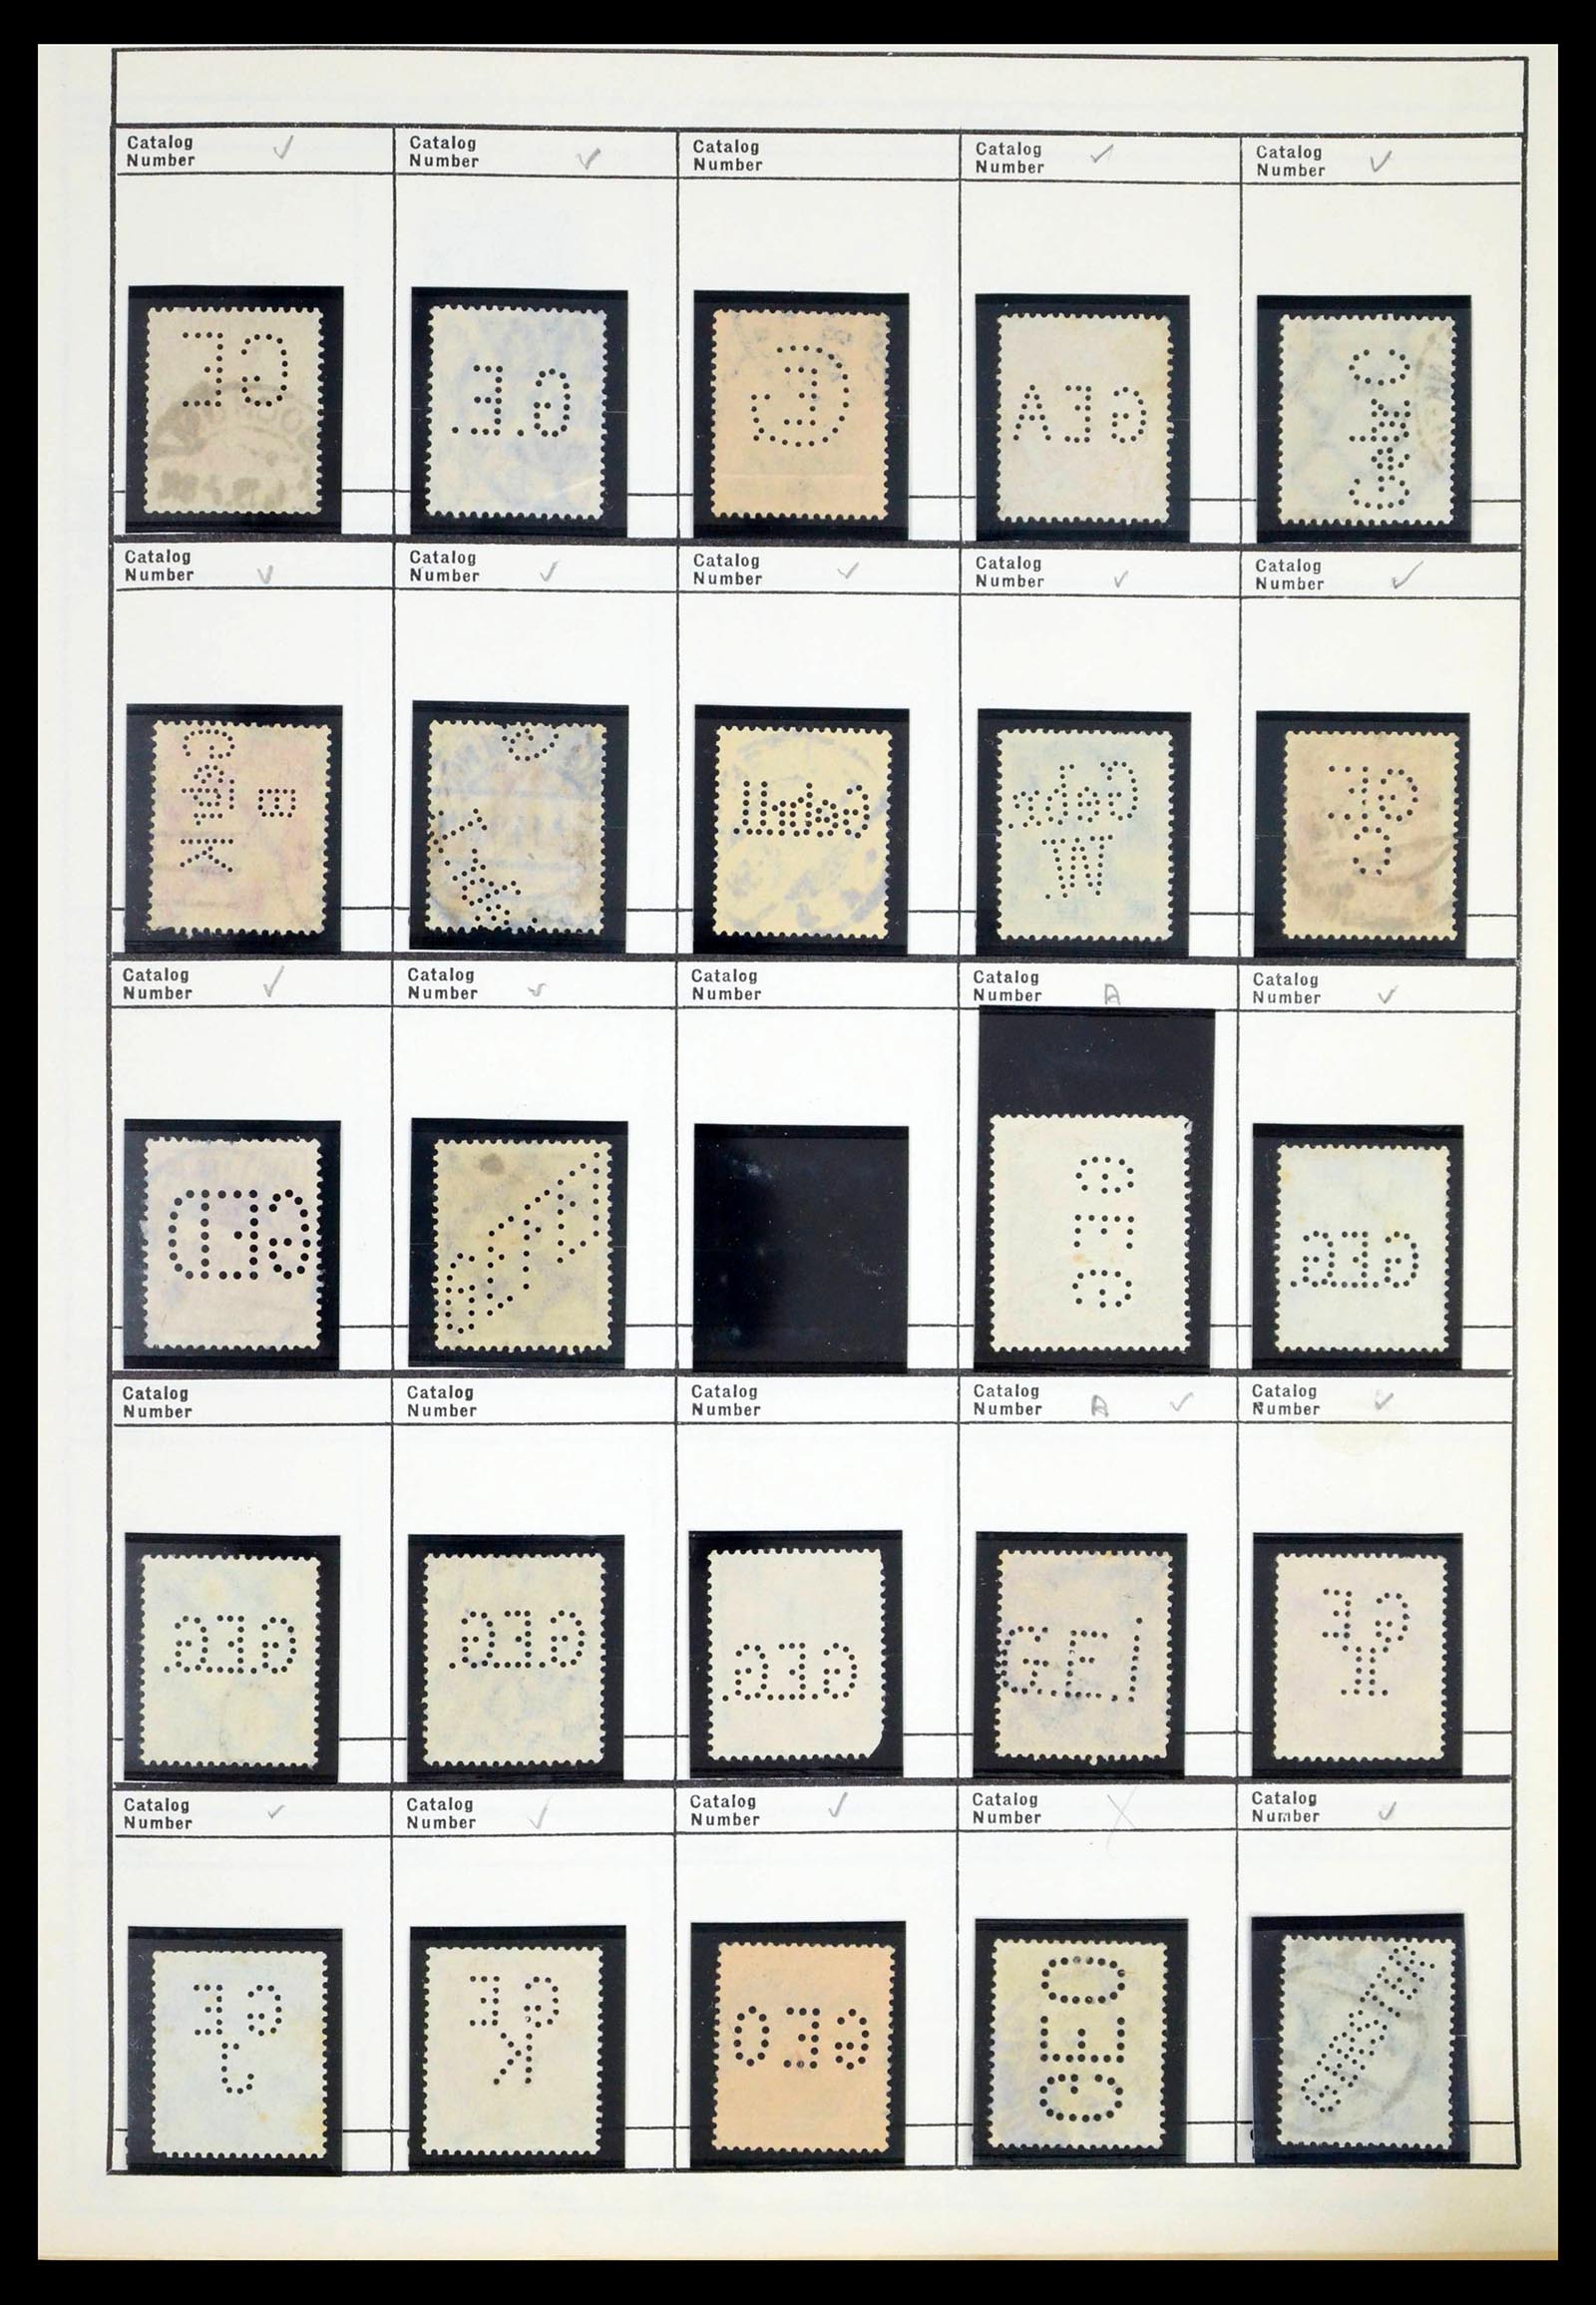 Catalog Number ✓ Catalog Number ✓ Catalog Number Catalog Number ✓ Catalog Number ✓
GE G.E. GE GEA
Catalog Number ✓ Catalog Number ✓ Catalog Number ✓ Catalog Number ✓ Catalog Number ✓
Gebr W GE C
Catalog Number ✓ Catalog Number ✓ Catalog Number Catalog Number A Catalog Number ✓
GED GEG G.E.G.
Catalog Number Catalog Number Catalog Number Catalog Number A ✓ Catalog Number ✓
G.E.G. G.E.G. G.E.G. G.E.J GE H
Catalog Number ✓ Catalog Number ✓ Catalog Number ✓ Catalog Number X Catalog Number ✓
GE J GE K GEO GEO